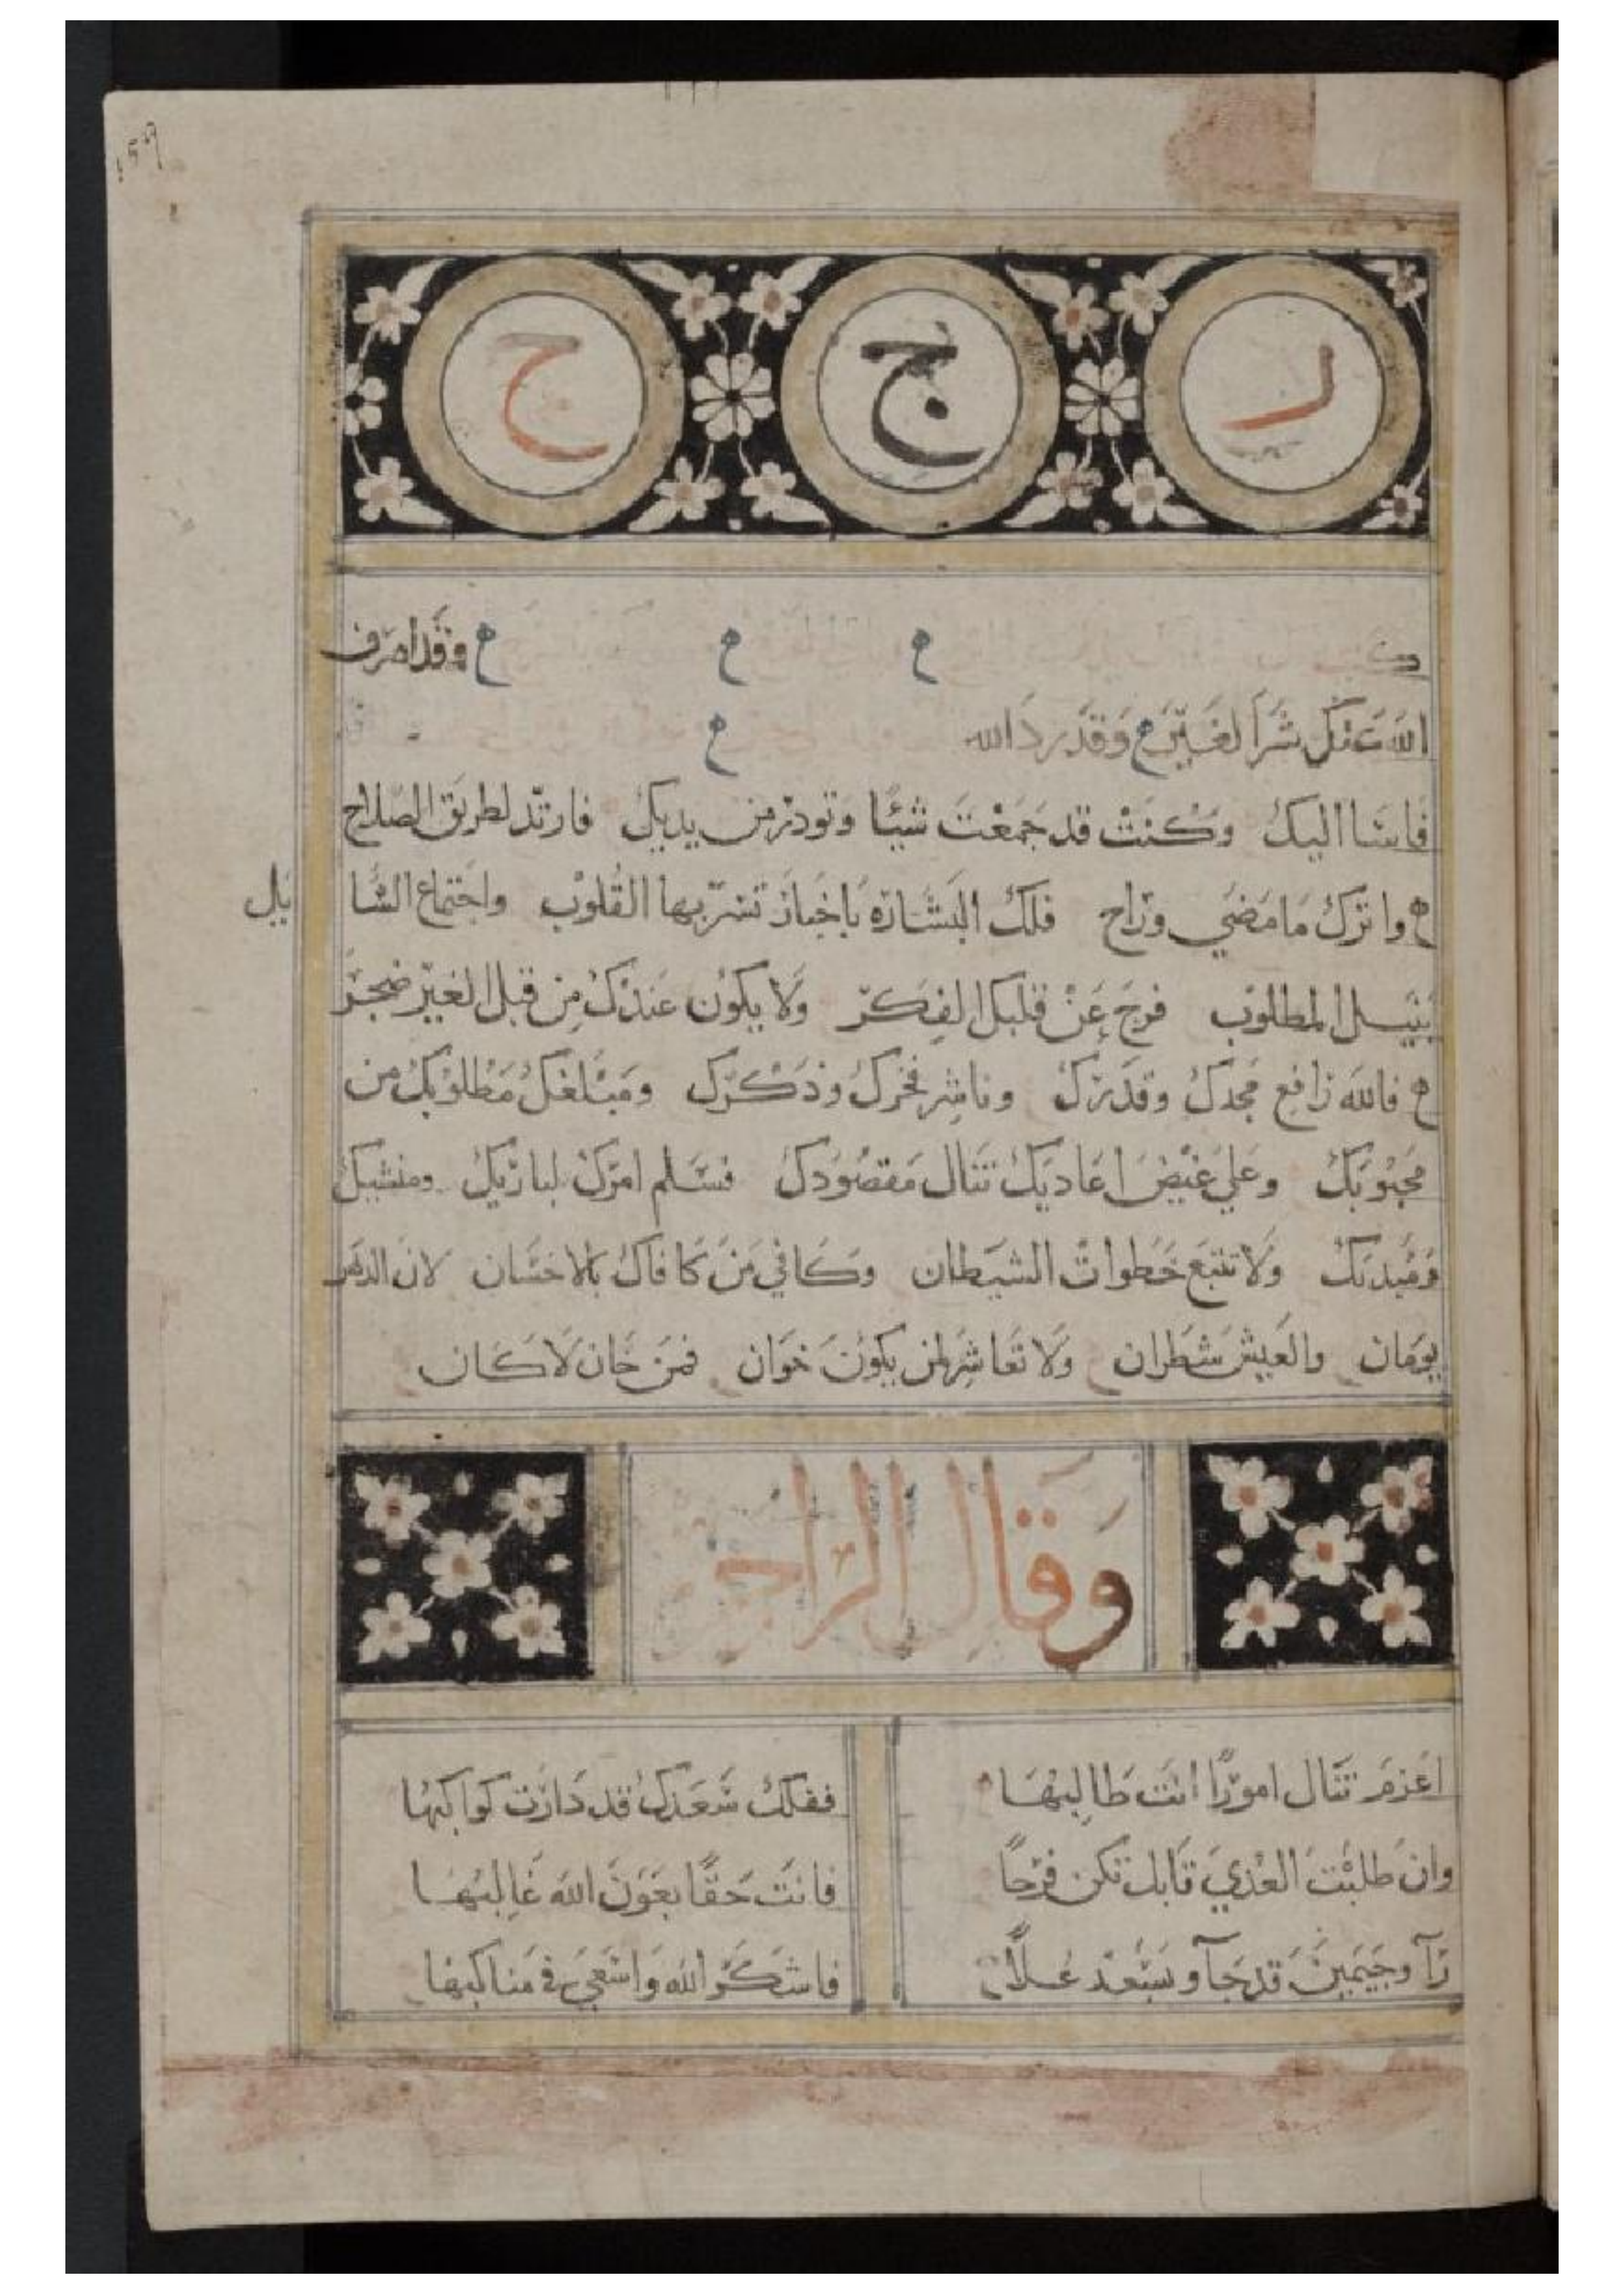 ١٥٩
ر ج ج
ح ح ح وقد اصرف
الله عنك شر الغير ح وقد رد الله ح
فاسا اليك وكنت قد جمعت شيئا وتودر من يديك فارتد لطريق الصلاح
ح واترك ما مضي وراح فلك البشارة باخبار تسر بها القلوب واجتماع الشا
يل
بنيل المطلوب فرج عن قلبك الفكر ولا يكون عندك من قبل الغير ضجر
ح فالله رافع مجدك وقدرك وناشر فخرك وذكرك ومبلغك مطلوبك من
محبوبك وعلي غيض اعاديك تنال مقصودك فسلم امرك لباريك ومنشيك
ومبديك ولا تتبع خطوات الشيطان وكافي من كافاك بالاحسان لان الدهر
يومان والعيش شطران ولا تعاشر لمن يكون خوان فمن خان لا كان
وقال الراجز
اعزم تنال امورا انت طالبها ففلك سعدك قد دارت كواكبها
وان طلبت العذي قابل تكن فرحا فانت حقا بعون الله غالبها
رآ وجيمين قد جآو بسعد علا فاشكر الله واسعي في مناكبها